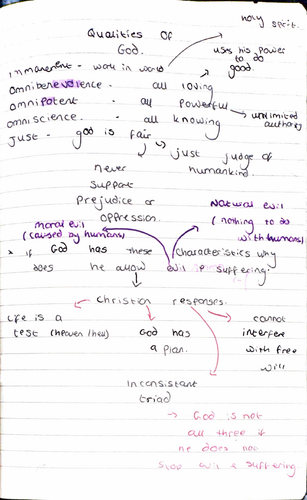 holy spirit.
Qualities Of
God.
uses his power
to do
good.
immanent - work in world
omnibenevolence - all loving
omnipotent - all powerful → unlimited
authority
omniscience - all knowing
just - god is fair
→ just judge of
humankind.
never
support
prejudice or
oppression.
moral evil
(caused by humans)
Natural evil
(nothing to do
with humans)
* if God has these characteristics why
does he allow evil & suffering
Christian responses.
Life is a
test (heaven/hell)
God has
a plan.
cannot
interfere
with free
will
Inconsistant
triad
→ God is not
all three if
he does not
stop evil & suffering